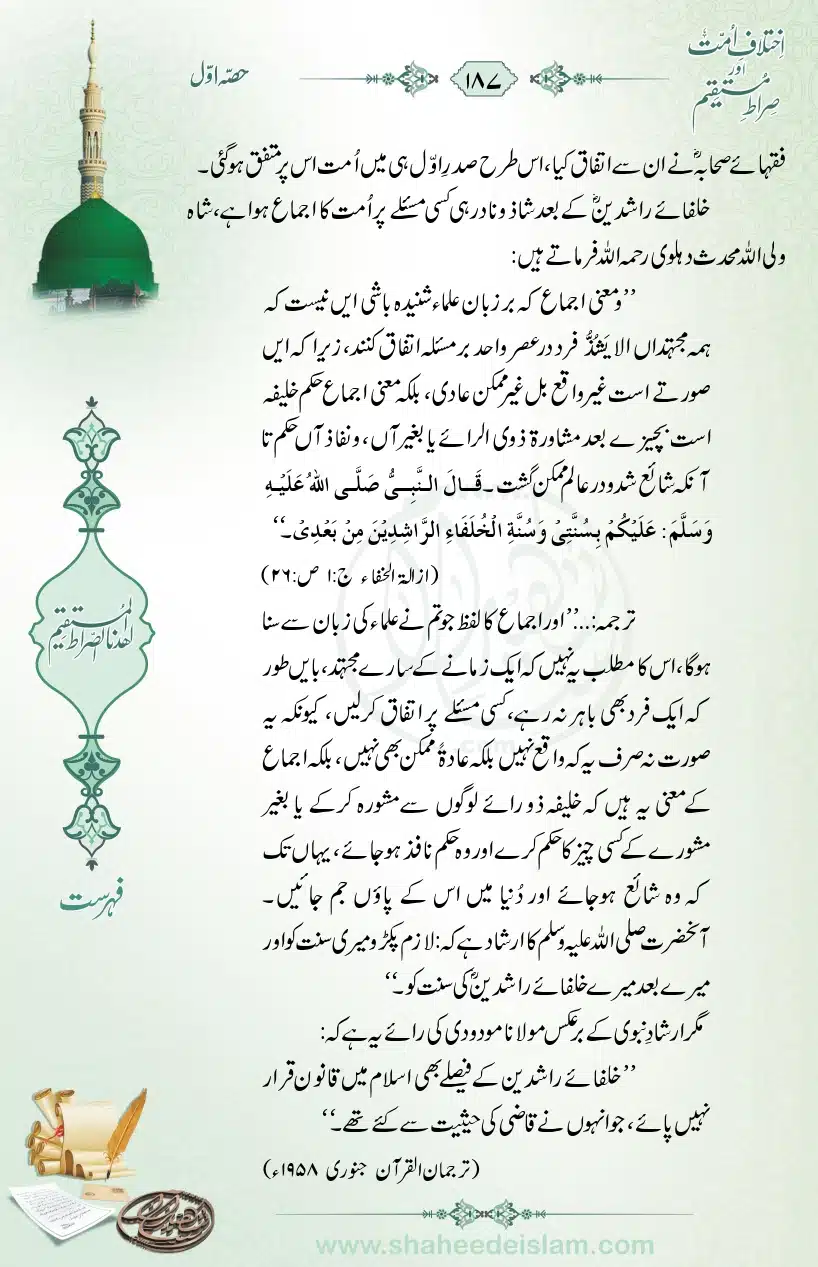 اِختلافِ اُمّت
اور
صِراطِ مُستقیم
۱۸۷
حصّہ اوّل
فقہائے صحابہؓ نے ان سے اتفاق کیا، اس طرح صدرِ اوّل ہی میں اُمت اس پر متفق ہوگئی۔
خلفائے راشدینؓ کے بعد شاذ و نادر ہی کسی مسئلے پر اُمت کا اجماع ہوا ہے، شاہ
ولی اللہ محدث دہلوی رحمہ اللہ فرماتے ہیں:
’’ومعنی اجماع کہ بر زبان علماء شنیدہ باشی ایں نیست کہ
ہمہ مجتہداں الا یَشُذُّ فرد در عصر واحد بر مسئلہ اتفاق کنند، زیرا کہ ایں
صورتے است غیر واقع بل غیر ممکن عادی، بلکہ معنی اجماع حکم خلیفہ
است بچیزے بعد مشاورۃ ذوی الرائے یا بغیر آں، ونفاذ آں حکم تا
آنکہ شائع شد ودر عالم ممکن گشت۔ قَالَ النَّبِیُّ صَلَّی اللہُ عَلَیْہِ
وَسَلَّمَ: عَلَیْکُمْ بِسُنَّتِیْ وَسُنَّۃِ الْخُلَفَاءِ الرَّاشِدِیْنَ مِنْ بَعْدِیْ۔‘‘
(ازالۃ الخفاء ج:۱ ص:۲۶)
ترجمہ:...’’اور اجماع کا لفظ جو تم نے علماء کی زبان سے سنا
ہوگا، اس کا مطلب یہ نہیں کہ ایک زمانے کے سارے مجتہد، بایں طور
کہ ایک فرد بھی باہر نہ رہے، کسی مسئلے پر اتفاق کرلیں، کیونکہ یہ
صورت نہ صرف یہ کہ واقع نہیں بلکہ عادۃً ممکن بھی نہیں، بلکہ اجماع
کے معنی یہ ہیں کہ خلیفہ ذو رائے لوگوں سے مشورہ کرکے یا بغیر
مشورے کے کسی چیز کا حکم کرے اور وہ حکم نافذ ہوجائے، یہاں تک
کہ وہ شائع ہوجائے اور دُنیا میں اس کے پاؤں جم جائیں۔
آنحضرت صلی اللہ علیہ وسلم کا ارشاد ہے کہ: لازم پکڑو میری سنت کو اور
میرے بعد میرے خلفائے راشدینؓ کی سنت کو۔‘‘
مگر ارشادِ نبوی کے برعکس مولانا مودودی کی رائے یہ ہے کہ:
’’خلفائے راشدین کے فیصلے بھی اسلام میں قانون قرار
نہیں پائے، جو انہوں نے قاضی کی حیثیت سے کئے تھے۔‘‘
(ترجمان القرآن جنوری ۱۹۵۸ء)
اھدنا الصّراط المُستقیم
فہرست
www.shaheedeislam.com